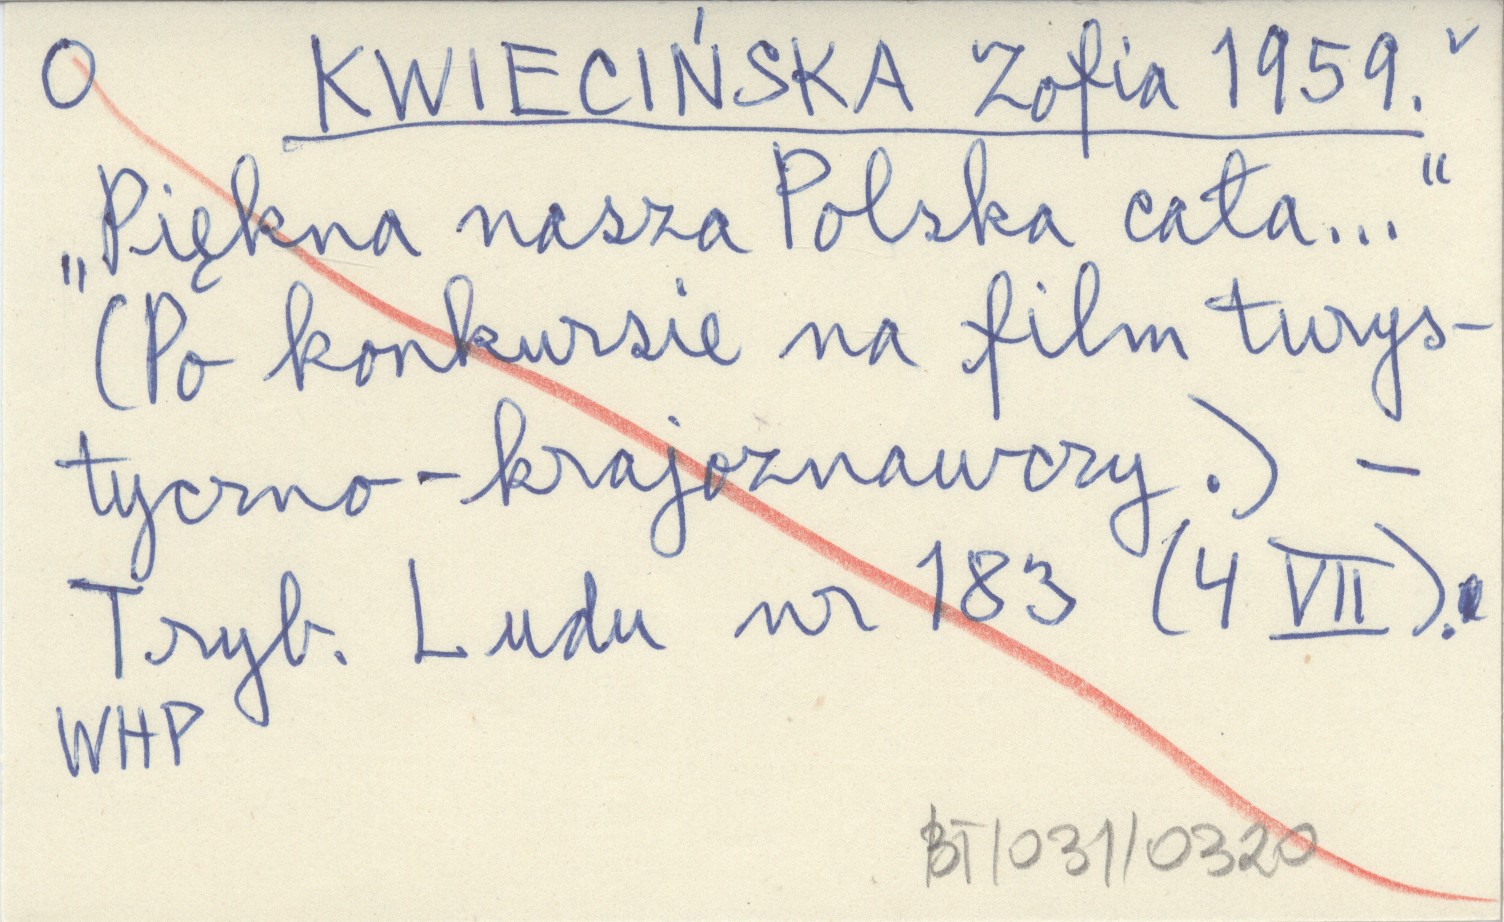 O KWIECIŃSKA Zofia 1959.
„Piękna nasza Polska cała..."
(Po konkursie na film turys-
tyczno-krajoznawczy.) -
Tryb. Ludu nr 183 (4 VII).
WHP
BT/031/0320